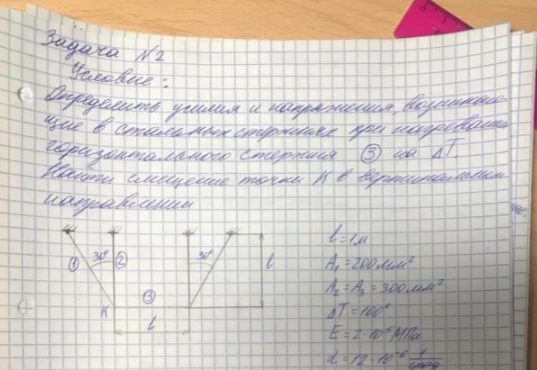 Задача №2
Условие:
Определить усилия и напряжения, возникаю-
щие в стальных стержнях при нагревании
горизонтального стержня ③ на ΔT.
Найти смещение точки K в вертикальном
направлении
① 30° ② 30° l
③
K
l
l = 1м
A₁ = 200мм²
A₂ = A₃ = 300мм²
ΔT = 100°
E = 2·10⁵ МПа
α = 12·10⁻⁶ 1/град